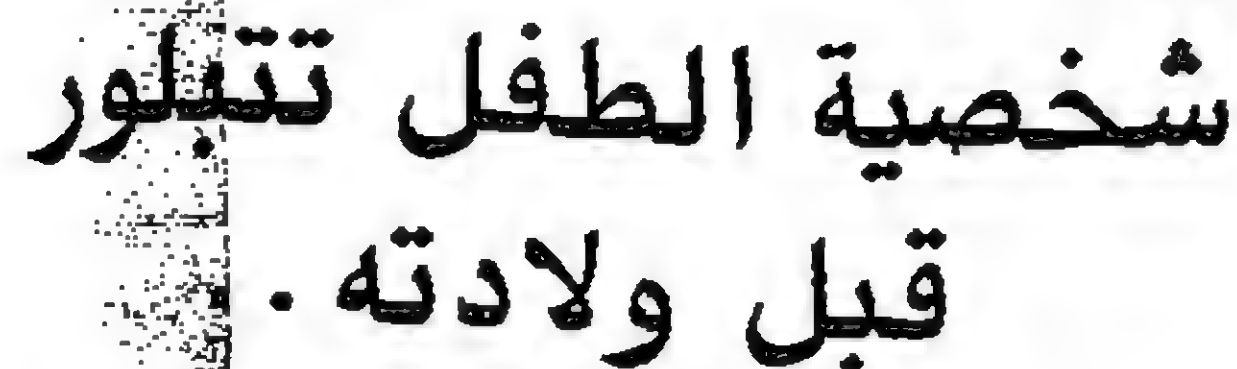 شخصية الطفل تتبلور
قبل ولادته .